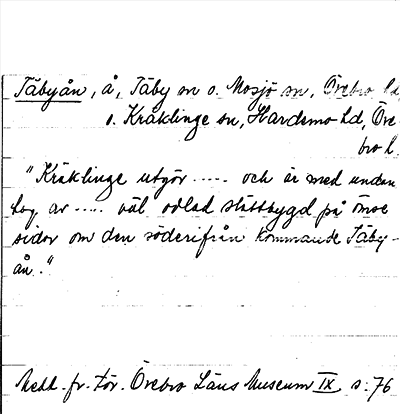 Täbyån, å, Täby sn o. Mosjö sn, Örebro hd
o. Kräklinge sn, Hardemo hd, Öre
bro l.
"Kräklinge utgör ..... och är med undan
tag av ..... väl odlad slättbygd på ömse
sidor om den söderifrån kommande Täby-
ån."
Medd. fr. för. Örebro Läns Museum IX s. 76